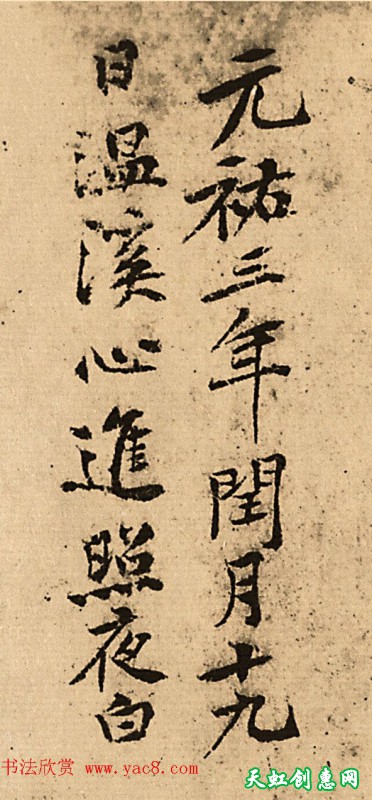 元祐三年閏月十九
日温溪心進照夜白
书法欣赏 www.yac8.com
天虹创惠网